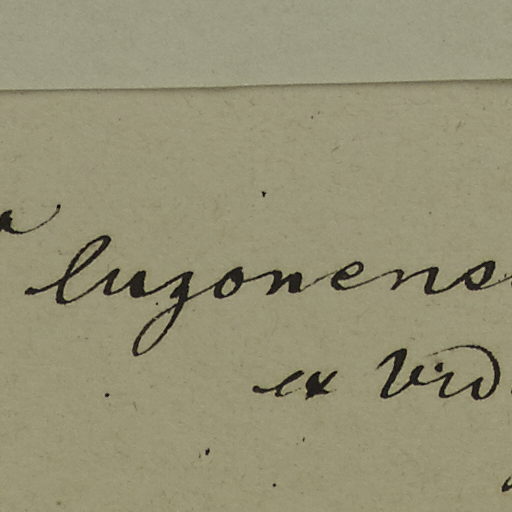 a luzonens
ex Vid